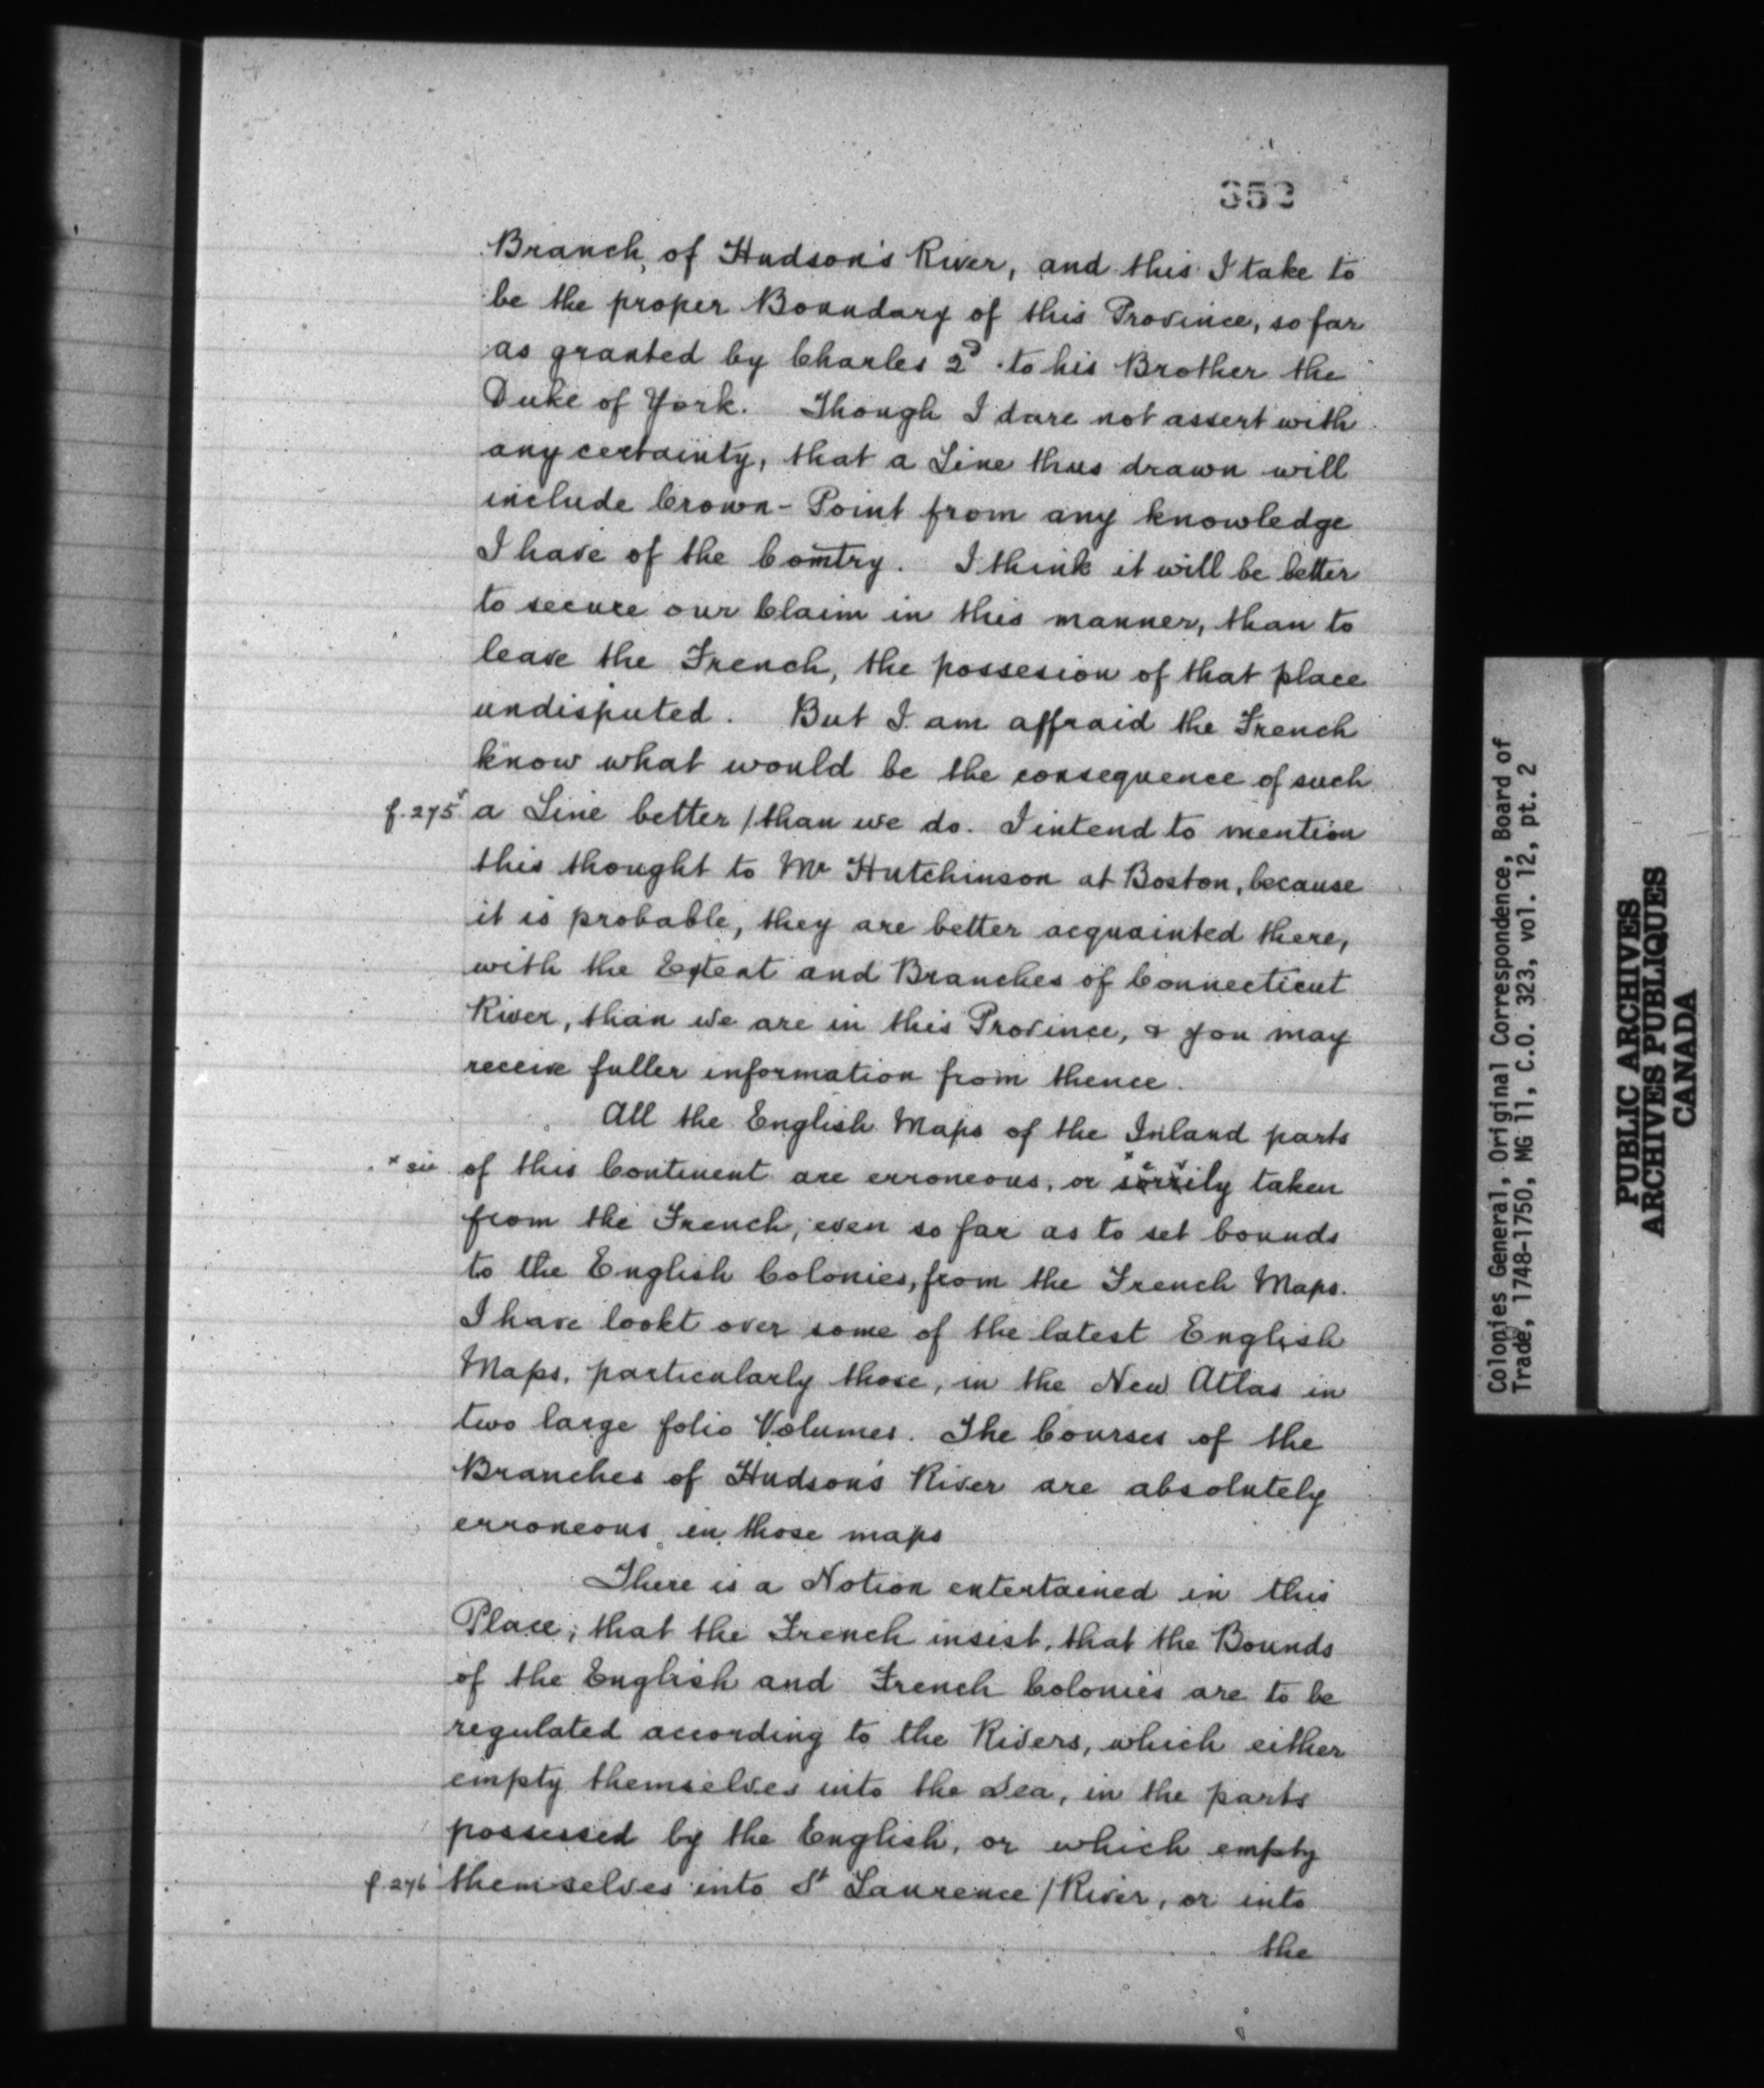 352
Branch, of Hudson's River, and this I take to
be the proper Boundary of this Province, so far
as granted by Charles 2d to his Brother the
Duke of York. Though I dare not assert with
any certainty, that a Line thus drawn will
include Crown-Point from any knowledge
I have of the Comtry. I think it will be better
to secure our Claim in this manner, than to
leave the French, the possesion of that place
undisputed. But I am affraid the French
know what would be the consequence of such
f.275v a Line better / than we do. I intend to mention
this thought to Mr Hutchinson at Boston, because
it is probable, they are better acquainted there,
with the Extent and Branches of Connecticut
River, than we are in this Province, & you may
receive fuller information from thence.
All the English Maps of the Inland parts
* sic of this Continent are erroneous, or taken
from the French, even so far as to set bounds
to the English Colonies, from the French Maps.
I have lookt over some of the latest English
Maps, particularly those, in the New Atlas in
two large folio Volumes. The Courses of the
Branches of Hudson's River are absolutely
erroneous in those maps
There is a Notion entertained in this
Place, that the French insist, that the Bounds
of the English and French Colonies are to be
regulated according to the Rivers, which either
empty themselves into the Sea, in the parts
possessed by the English, or which empty
f.276 themselves into St Laurence / River, or into
the
Colonies General, Original Correspondence, Board of
Trade, 1748-1750, MG 11, C.O. 323, vol. 12, pt. 2
PUBLIC ARCHIVES
ARCHIVES PUBLIQUES
CANADA